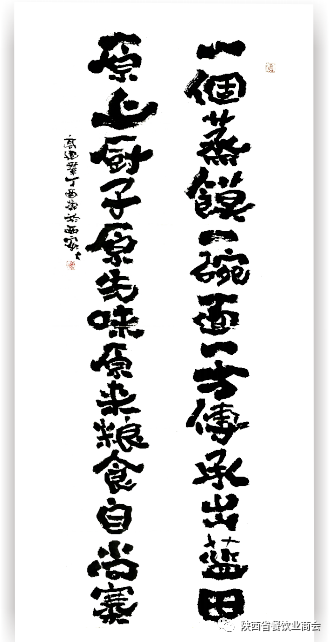 一個蒸饃一碗面一方傳承出藍田
原上厨子原先味原来粮食自尚寨
高建群
陕西省餐饮业商会